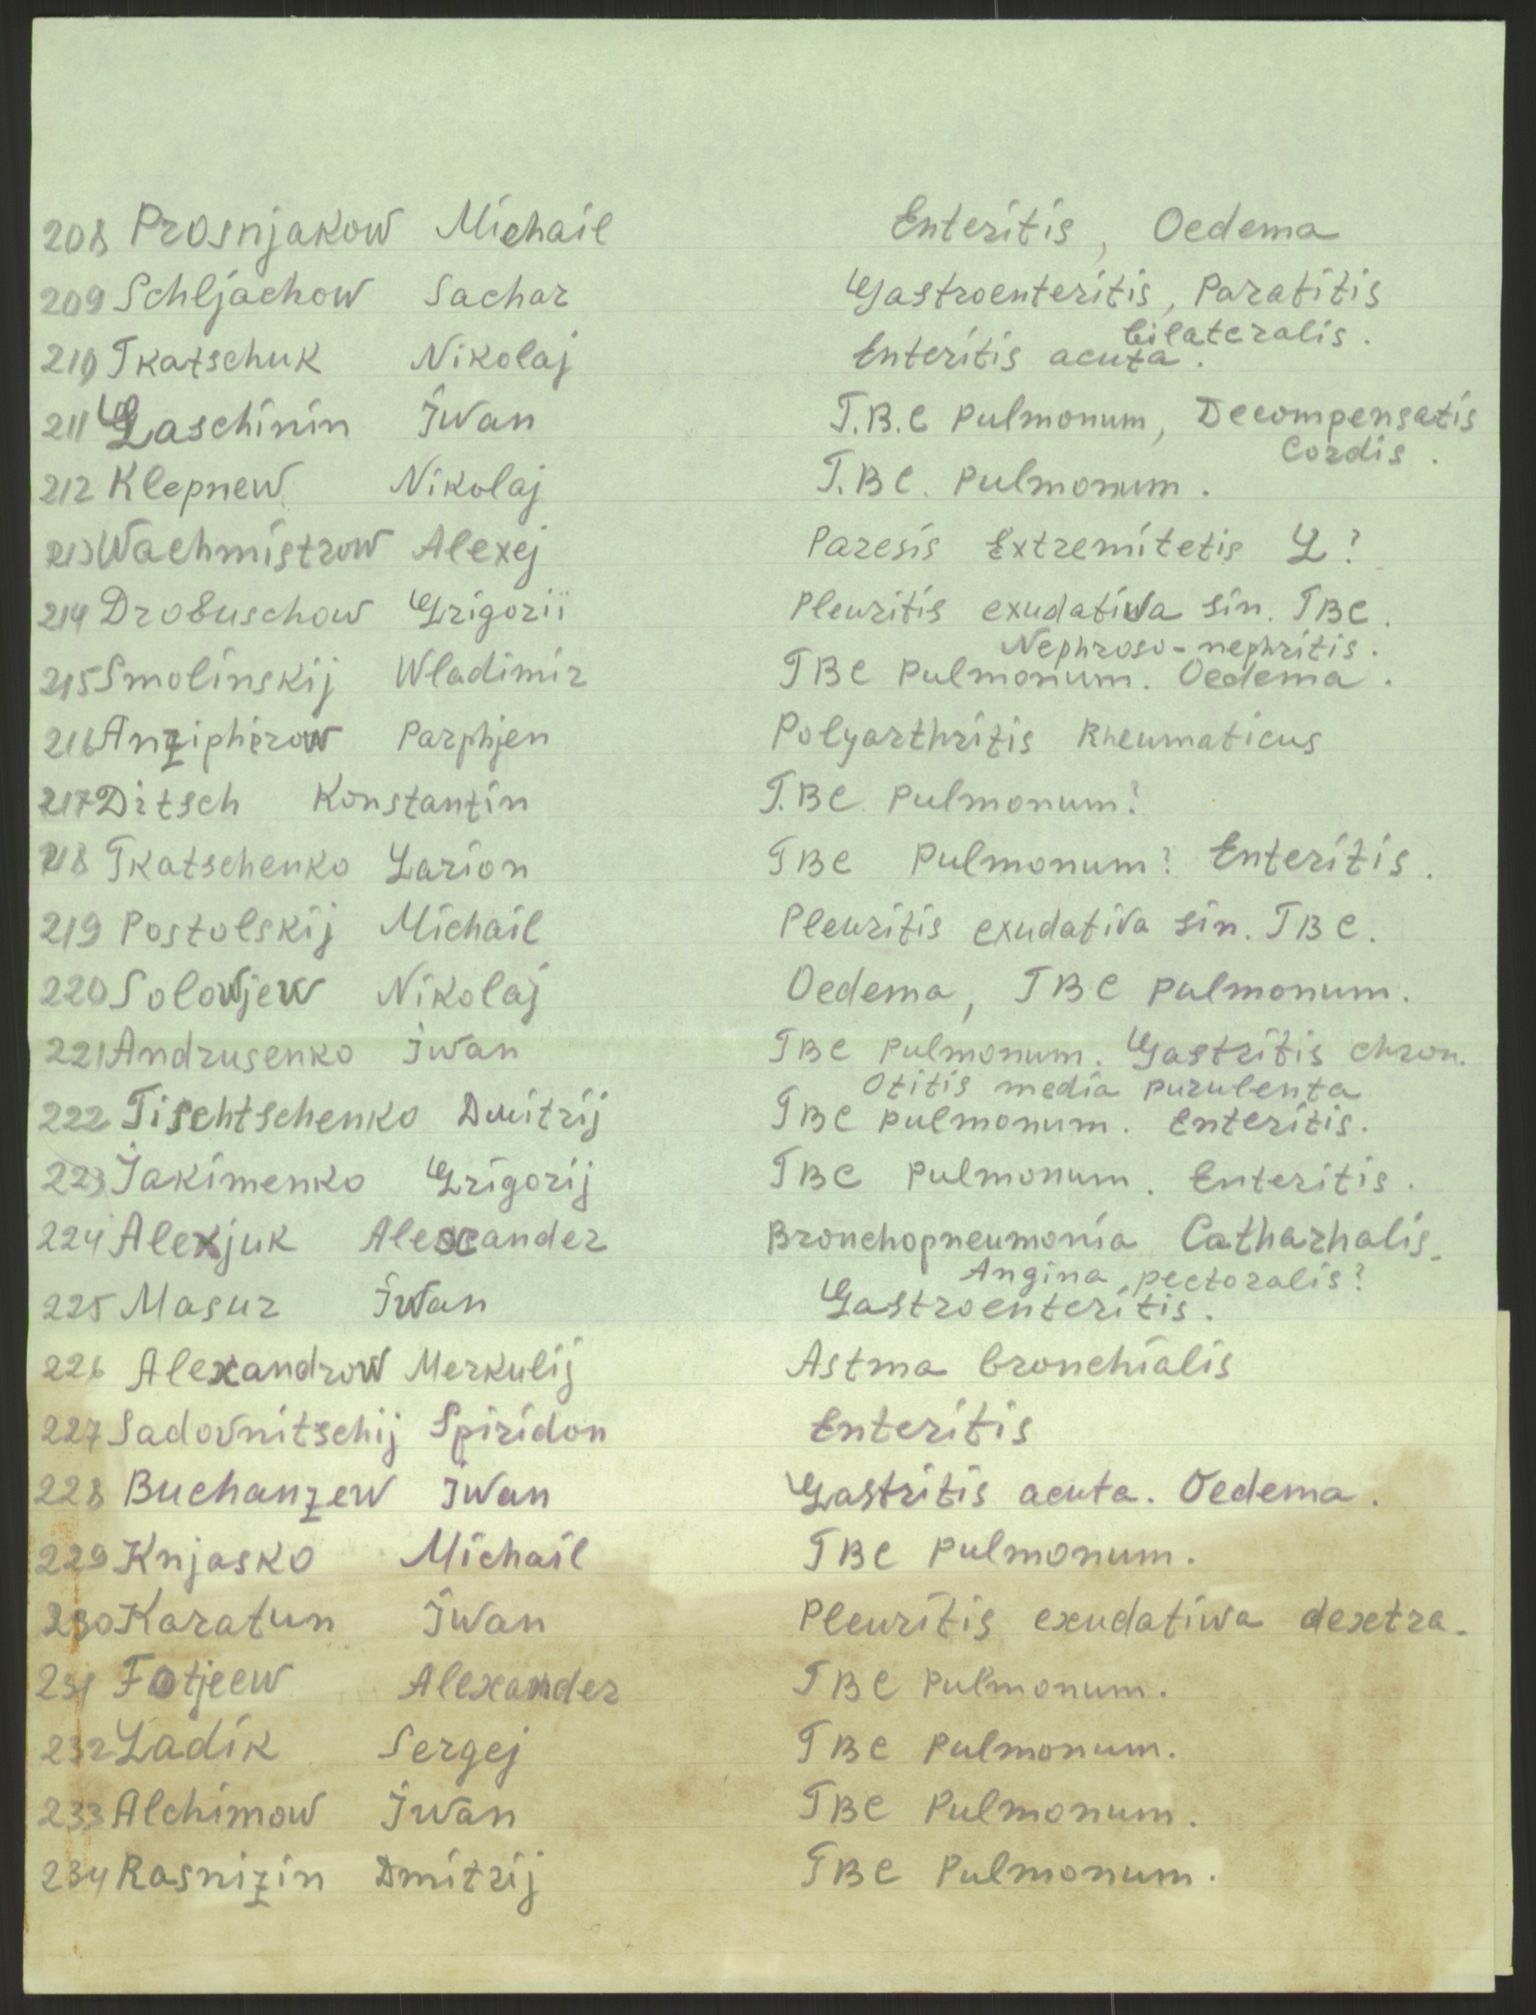 208 Prosnjakow Michail Enteritis, Oedema
209 Schljachow Sachar Gastroenteritis, Paratitis
bilateralis.
210 Tkatschuk Nikolaj Enteritis acuta.
211 Laschinin Iwan T.B.C pulmonum, Decompensatis
Cordis.
212 Klepnew Nikolaj T.BC. pulmonum.
213 Wachmistrow Alexej Paresis Extremitetis L?
214 Drobuschow Grigorii Pleuritis exudatiwa sin. TBC.
Nephroso-nephritis.
215 Smolinskij Wladimir TBC pulmonum. Oedema.
216 Anzipherow Parphjen Polyarthritis Rheumaticus
217 Ditsch Konstantin T.BC. pulmonum?
218 Tkatschenko Larion TBC pulmonum? Enteritis.
219 Postolskij Michail Pleuritis exudativa sin. TBC.
220 Solowjew Nikolaj Oedema, TBC pulmonum.
221 Andrusenko Iwan TBC pulmonum. Gastritis chron.
Otitis media purulenta
222 Tischtschenko Dmitrij TBC pulmonum. Enteritis.
223 Jakimenko Grigorij TBC pulmonum. Enteritis.
224 Alexjuk Alexander Bronchopneumonia Catharhalis.
Angina pectoralis?
225 Masur Iwan Gastroenteritis.
226 Alexandrow Merkulij Astma bronchialis
227 Sadovnitschij Spiridon Enteritis
228 Buchanzew Iwan Gastritis acuta. Oedema.
229 Knjasko Michail TBC pulmonum.
230 Karatun Iwan Pleuritis exudatiwa dextra.
231 Fotjeew Alexander TBC pulmonum.
232 Ladik Sergej TBC pulmonum.
233 Alchimow Iwan TBC Pulmonum.
234 Rasnizin Dmitrij TBC Pulmonum.